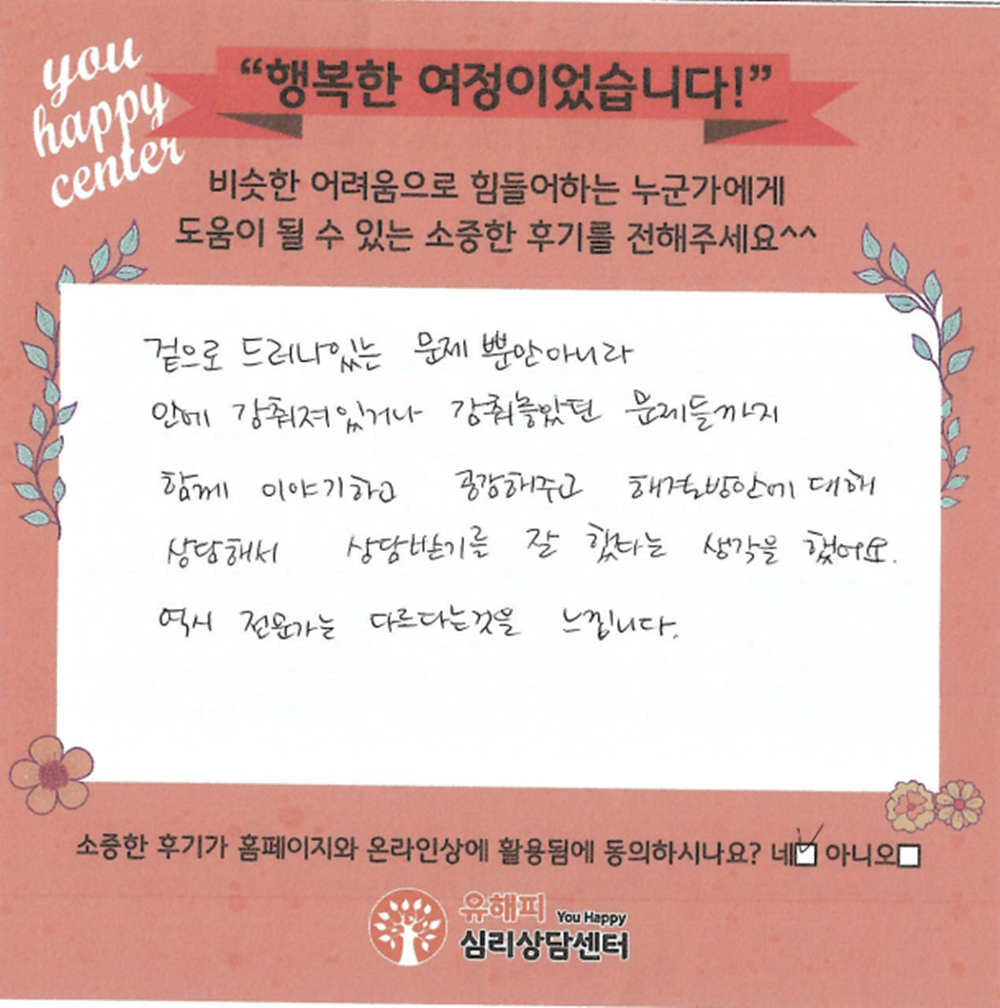 you
happy
center
“행복한 여정이었습니다!”
비슷한 어려움으로 힘들어하는 누군가에게
도움이 될 수 있는 소중한 후기를 전해주세요^^
겉으로 드러나있는 문제 뿐만아니라
안에 감춰져있거나 감춰놓았던 문제들까지
함께 이야기하고 공감해주고 해결방안에 대해
상담해서 상담받기를 잘 했다는 생각을 했어요.
역시 전문가는 다르다는것을 느낍니다.
소중한 후기가 홈페이지와 온라인상에 활용됨에 동의하시나요? 네 아니오
유해피 You Happy
심리상담센터